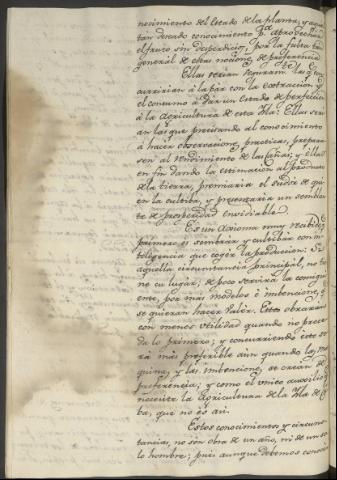 nocimiento del Estado de la planta, y apa
tan deseado conocimiento pª. aprovechar
el fruto sin desperdicio, por la falta tan
general de estas nociones de preferencia
Ellas serán seguram.te las q.e con
currirían á la par con la extraccion y
el consumo á dar un Estado de perfeccion
á la agricultura de esta Isla: Ellas ser
an las que precisando al conocimiento
á hacer observaciones practicas, prepara
sen al rendimiento de las cañas; y ellas
en fin dando la estimacion al producto
de la tierra, premiaria el sudor de qui
en la cultiva, y presentaria un semblan
te de prosperidad envidiable.
Es un axioma muy recibido q.e
primero es sembrar y cultivar con in
teligencia que coger la produccion: Si
aquella circunstancia principal, no tie
ne su lugar; de poco servirá la consigui
ente, por mas modelos é imbenciones, q.e
se quieran hacer valer. Estas obrarán
con menos utilidad quando no prece
da lo primero; y concurriendo este se
rá mas preferible aun quando las ma
quinas, y las imbenciones, se crean de
preferencia; y como el unico auxilio q.e
necesita la Agricultura de la Isla de Cu
ba, que no es asi.
Estos conocimientos y circuns
tancias, no són obra de un año, ni de un so
lo hombre; pues aunque debemos conocer